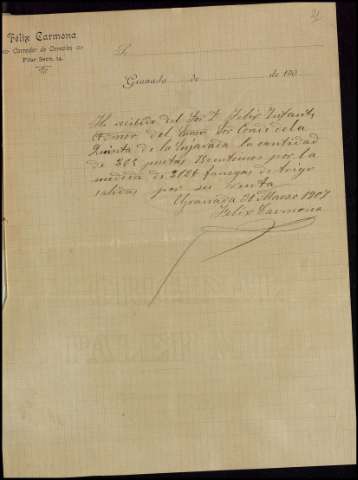 Felix Carmona
Corredor de Cereales
Pilar Seco, 14.
S.
Granada de de 190
He recibido del Sor. D. Felix Infante
del Sor Conde de la
Quinta de la Enjarada la cantidad
de 203 psetas centimos por la
medida de 2028 fanegas de trigo
salidas por su venta
Granada 20 Marzo 1907
Felix Carmona